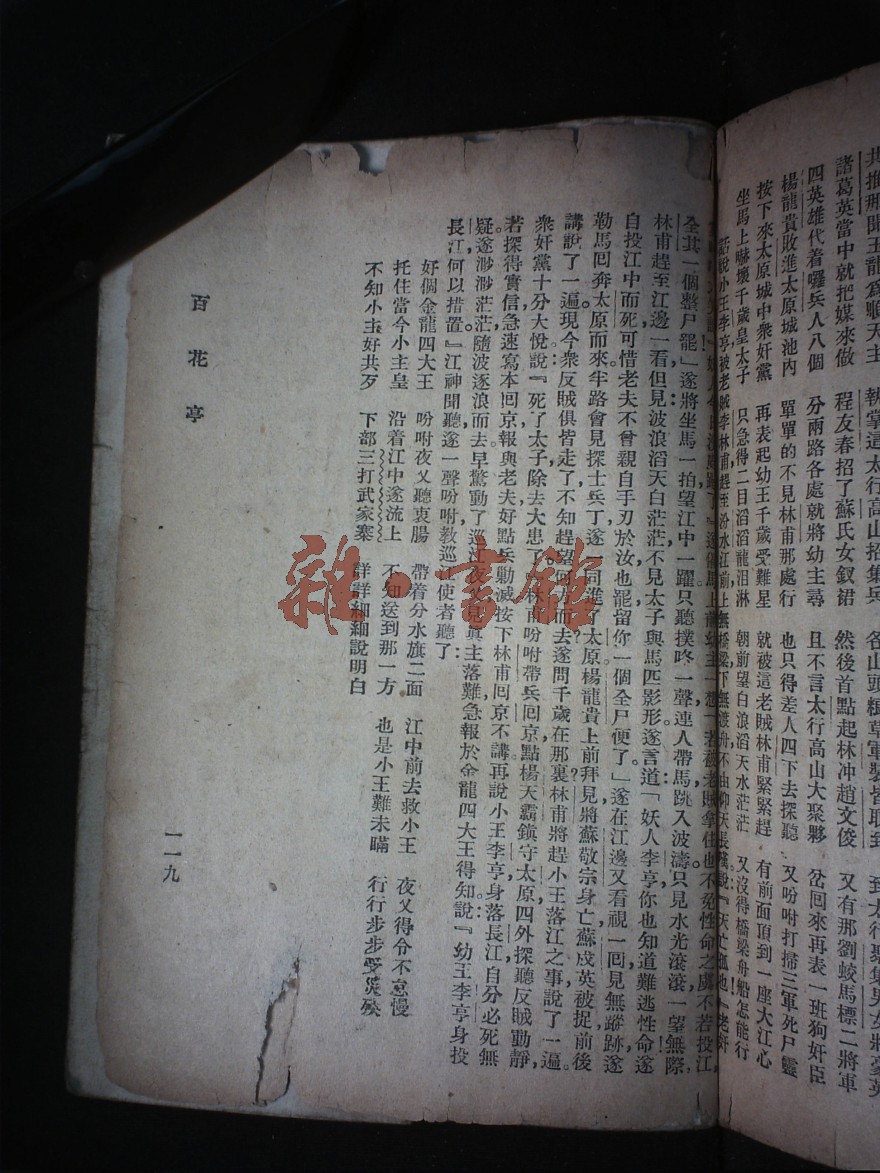 共推那
諸葛英當中就把媒來做 程友春招了蘇氏女釵裙 然後首點起林冲趙文俊 又有那劉蛟馬標二將軍
四英雄代着囉兵人八個 分兩路各處就將幼主尋 且不言太行高山大聚夥 岔回來再表一班狗奸臣
楊龍貴敗進太原城池內 單單的不見林甫那處行 也只得差人四下去探聽 又吩咐打掃三軍死尸靈
按下來太原城中衆奸黨 再表起幼王千歲受難星 就被這老賊林甫緊緊趕 有前面頂到一座大江心
坐馬上嚇壞千歲皇太子 只急得二目滔滔龍泪淋 朝前望白浪滔天水茫茫 又沒得橋梁舟船怎能行
話說小王李亨被老賊李林甫趕至汾水江前上無橋梁下無渡舟不由仰天長嘆說『天亡孤也』老奸
全其一個整尸罷」遂將坐馬一拍望江中一躍只聽撲咚一聲連人帶馬跳入波濤只見水光滾滾一望無際
林甫趕至江邊一看但見波浪滔天白茫茫不見太子與馬匹影形遂言道「妖人李亨你也知道難逃性命遂
自投江中而死可惜老夫不曾親自手刃於汝也罷留你一個全尸便了。」遂在江邊又看視一回見無蹤跡遂
勒馬回奔太原而來半路會見探士兵丁遂一同進了太原楊龍貴上前拜見將蘇敬宗身亡蘇成英被捉前後
講說了一遍現今衆反賊俱皆走了不知趕望何方而去遂問千歲在那裏林甫將趕小王落江之事說了一遍。
衆奸黨十分大悅說『死了太子除去大患了』林甫吩咐帶兵回京點楊天霸鎮守太原四外探聽反賊動靜,
若探得實信急速寫本回京報與老夫好點兵勦滅按下林甫回京不講再說小王李亨身落長江自分必死無
疑遂渺渺茫茫隨波逐浪而去早驚動了巡江夜叉見眞主落難急報於金龍四大王得知說『幼王李亨身投
長江何以措置』江神聞聽遂一聲吩咐教巡江使者聽了:
好個金龍四大王 吩咐夜叉聽衷腸 帶着分水旗二面 江中前去救小王 夜叉得令不怠慢
托住當今小主皇 沿着江中遂流上 不知送到那一方 也是小王難未瞞 行行步步受災殃
不知小主好共歹 下部三打武家寨 詳詳細細說明白
百花亭
一一九
雜·書館